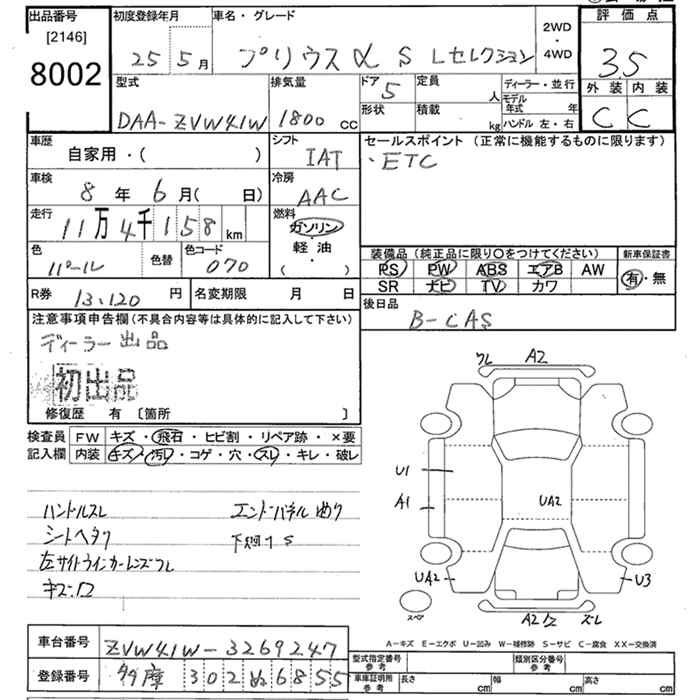 出品番号
[2146]
8002
初度登録年月
25年5月
車名・グレード
プリウスα S Lセレクション
2WD
・
4WD
評価点
3.5
外装 内装
C C
型式
DAA-ZVW41W
排気量
1800 cc
ドア
5
形状
定員
人
積載
kg
ディーラー・並行
モデル年式 年
ハンドル 左・右
車歴
自家用・( )
シフト
IAT
セールスポイント(正常に機能するものに限ります)
・ETC
車検
8年6月( 日)
冷房
AAC
走行
11万4千158 km
燃料
ガソリン
・
軽油
( )
色
パール
色替
色コード
070
装備品(純正品に限り○をつけてください)
PS PW ABS エアB AW
SR ナビ TV カワ
新車保証書
有・無
R券 13,120円
名変期限 月 日
後日品
B-CAS
注意事項申告欄(不具合内容等は具体的に記入して下さい)
ディーラー出品
初出品
修復歴 有 〔箇所 〕
検査員記入欄
FW キズ・飛石・ヒビ割・リペア跡・×要
内装 キズ・汚レ・コゲ・穴・スレ・キレ・破レ
ハンドルスレ
シートヘタリ
左サイドウインカーレンズワレ
キズ・凹
エンドパネル
下廻りS
ワレ A2
U1
A1
UA2
UA2
U3
スペア
A2 スレ
A-キズ E-エクボ U-凹み W-補修跡 S-サビ C-腐食 XX-交換済
車台番号 ZVW41W-3269247
登録番号 多摩 302 ぬ 6855
型式指定番号
参考
類別区分番号
参考
車庫証明用
参考
長さ cm
幅 cm
高さ cm